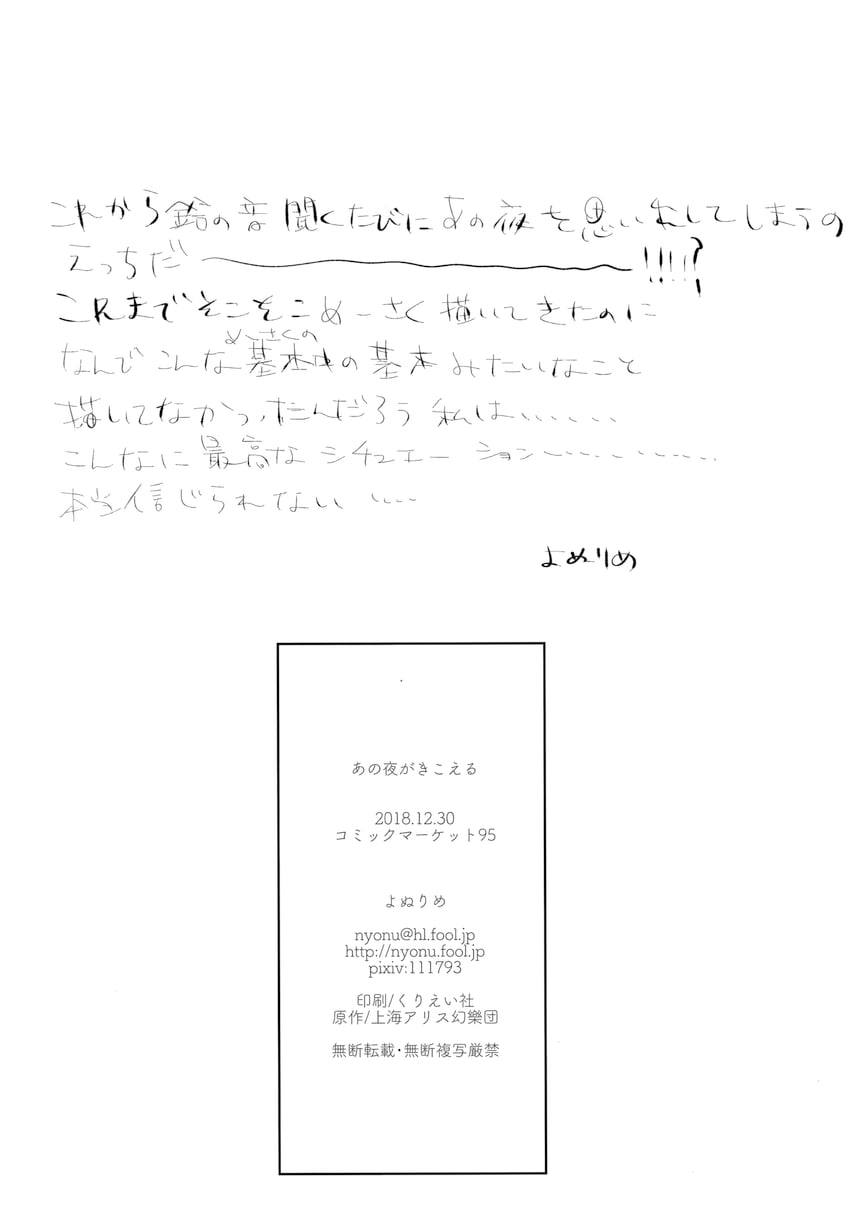 これから鈴の音聞くたびにあの夜を思い出してしまうの
えっちだ〜〜!!!!?
これまでそこそこめーさく描いてきたのに
めーさくの
なんでこんな基本中の基本みたいなこと
描いてなかったんだろう私は……
こんなに最高なシチュエーション…………
本当信じられない……
よぬりめ
あの夜がきこえる
2018.12.30
コミックマーケット95
よぬりめ
nyonu@hl.fool.jp
http://nyonu.fool.jp
pixiv:111793
印刷/くりえい社
原作/上海アリス幻樂団
無断転載・無断複写厳禁